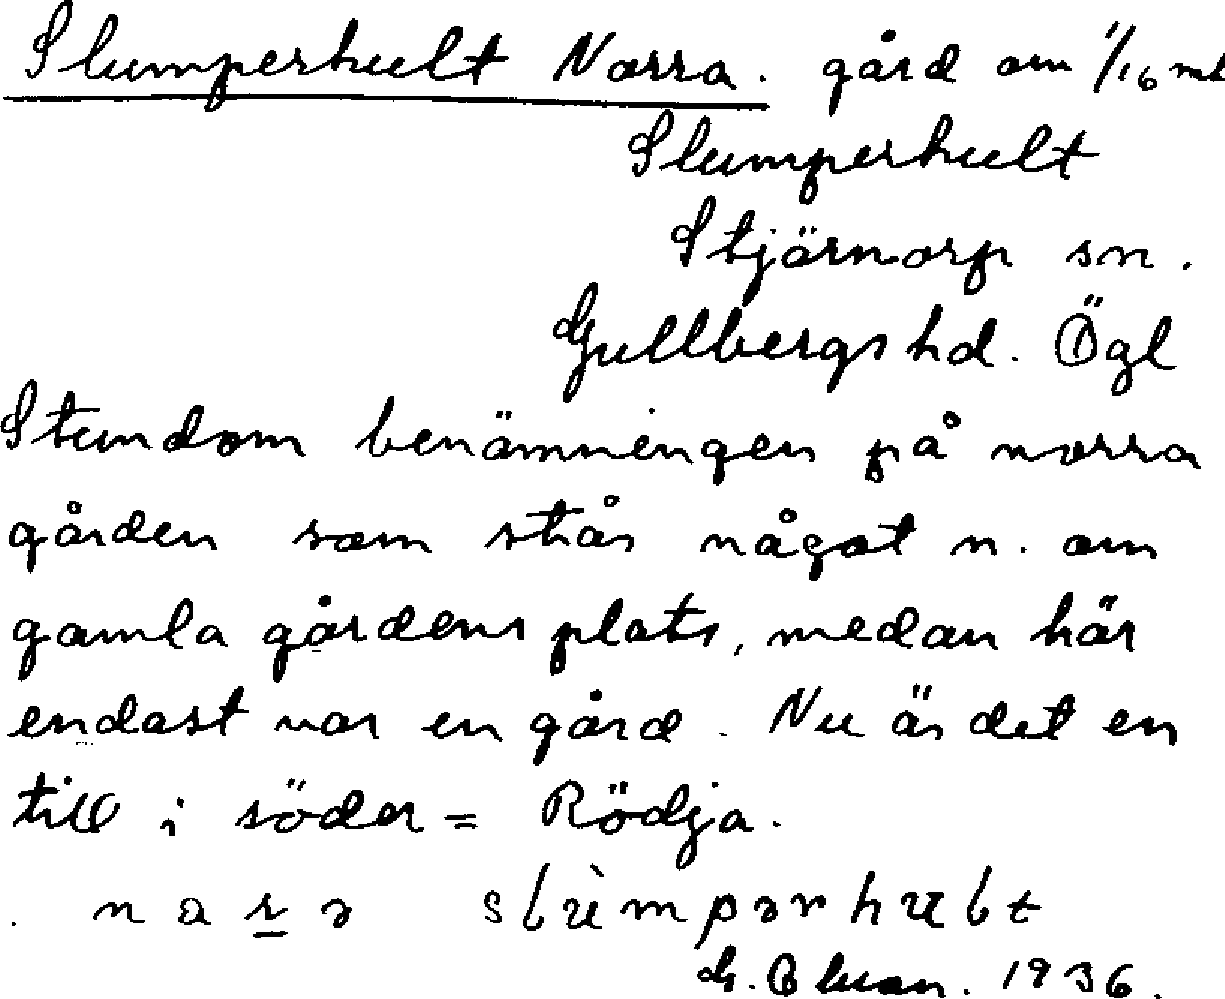 Slumperhult Norra. gård om 1/16 mt
Slumperhult
Stjärnorp sn.
Gullbergs hd. Ögl
Stundom benämningen på norra
gården som står något n. om
gamla gårdens plats, medan här
endast var en gård. Nu är det en
till i söder = Rödja.